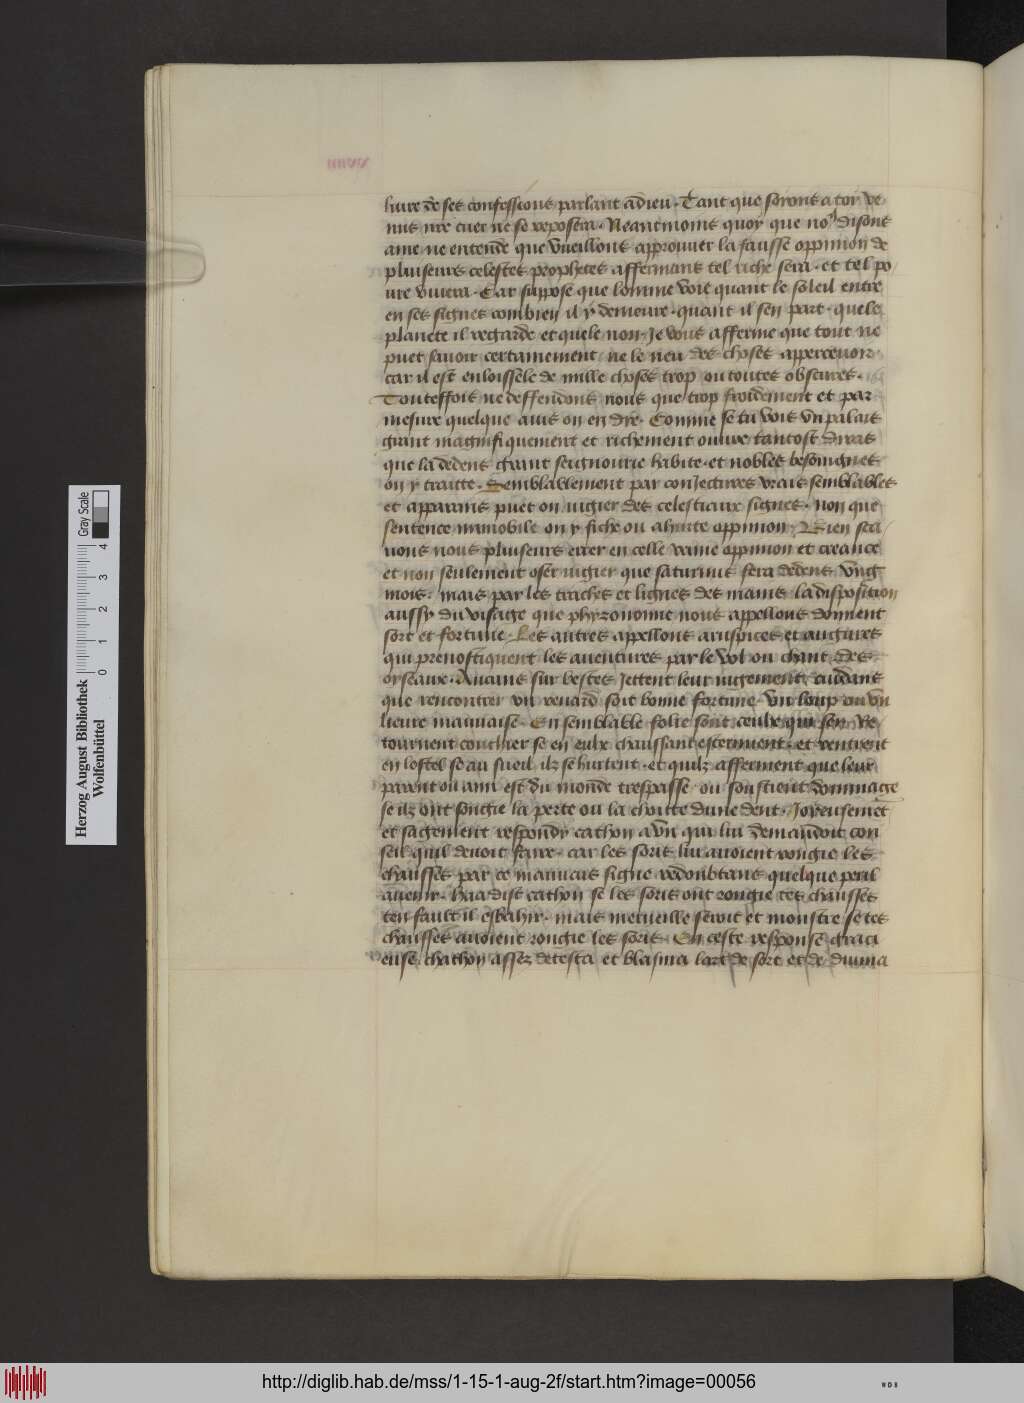 liure de ses confessions parlant a dieu · Tant que serons a toy ve
nus nre cuer ne se reposera · Neantmoins quoy que no9 disons
ame ne entende que vueillons approuuer la fausse oppinion de
pluiseurs celestes prophetes affermans tel riche sera · et tel po
ure viuera · Car suppose que lomme voie quant le soleil entre
en ses signes combien il y demeure · quant il sen part · quele
planete il regarde et quele non · Je vous afferme que tout ne
puet sauoir certainement ne le neu des choses apperceuoir ·
car il est en loissele de mille choses trop ou toutes obscures ·
Touteffois ne deffendons nous que trop froidement et par
mesure quelque auis on en die · Comme se tu vois vn palais
grant magnifiquement et richement ouure tantost diras
que la dedens grant seignourie habite · et nobles besoingnes
on y traitte · Semblablement par coniectures vrais semblables
et apparans puet on iugier des celestiaux signes · non que
sentence inmobile on y fiche ou ahurte oppinion · Bien sca
uons nous pluiseurs errer en celle vaine oppinion et creance
et non seulement oser iugier que saturnus sera dedens vng
mois · mais par les traches et lignes des mains · la disposition
aussy du visage que phizonomie nous appellons donnent
sort et fortune · Les autres appellons aruspices et augures
qui prenostiquent les auentures par le vol ou chant des
oyseaux · Aucuns sur bestes Jettent leur iugement cuidans
que rencontrer vn renard soit bonne fortune · vn loup ou vn
lieure mauuaise · En semblable folie sont ceulx qui sen re
tournent couchier se en eulx chaussant esternuent · et rentrent
en lostel se au sueil ilz se hurtent · et quilz afferment que leur
parent ou ami est du monde trespasse · ou soustient dommage
se ilz ont songie la perte ou la choitte dune dent · Joyeusement
et sagement respondy cathon a vn qui lui demandoit con
seil quil deuoit faire · car les soris lui auoient rongie les
chausses par ce mauuais signe redoubtans quelque peril
auenir · Haa dist cathon se les soris ont rongie tes chausses
ten fault il esbahir · mais merueille seroit et monstre se tes
chausses auoient rongie les soris · En ceste response graci
euse chathon assez detesta et blasma lart de sort et de diuina
Herzog August Bibliothek
Wolfenbüttel
0 1 2 3 4
Gray Scale
http://diglib.hab.de/mss/1-15-1-aug-2f/start.htm?image=00056